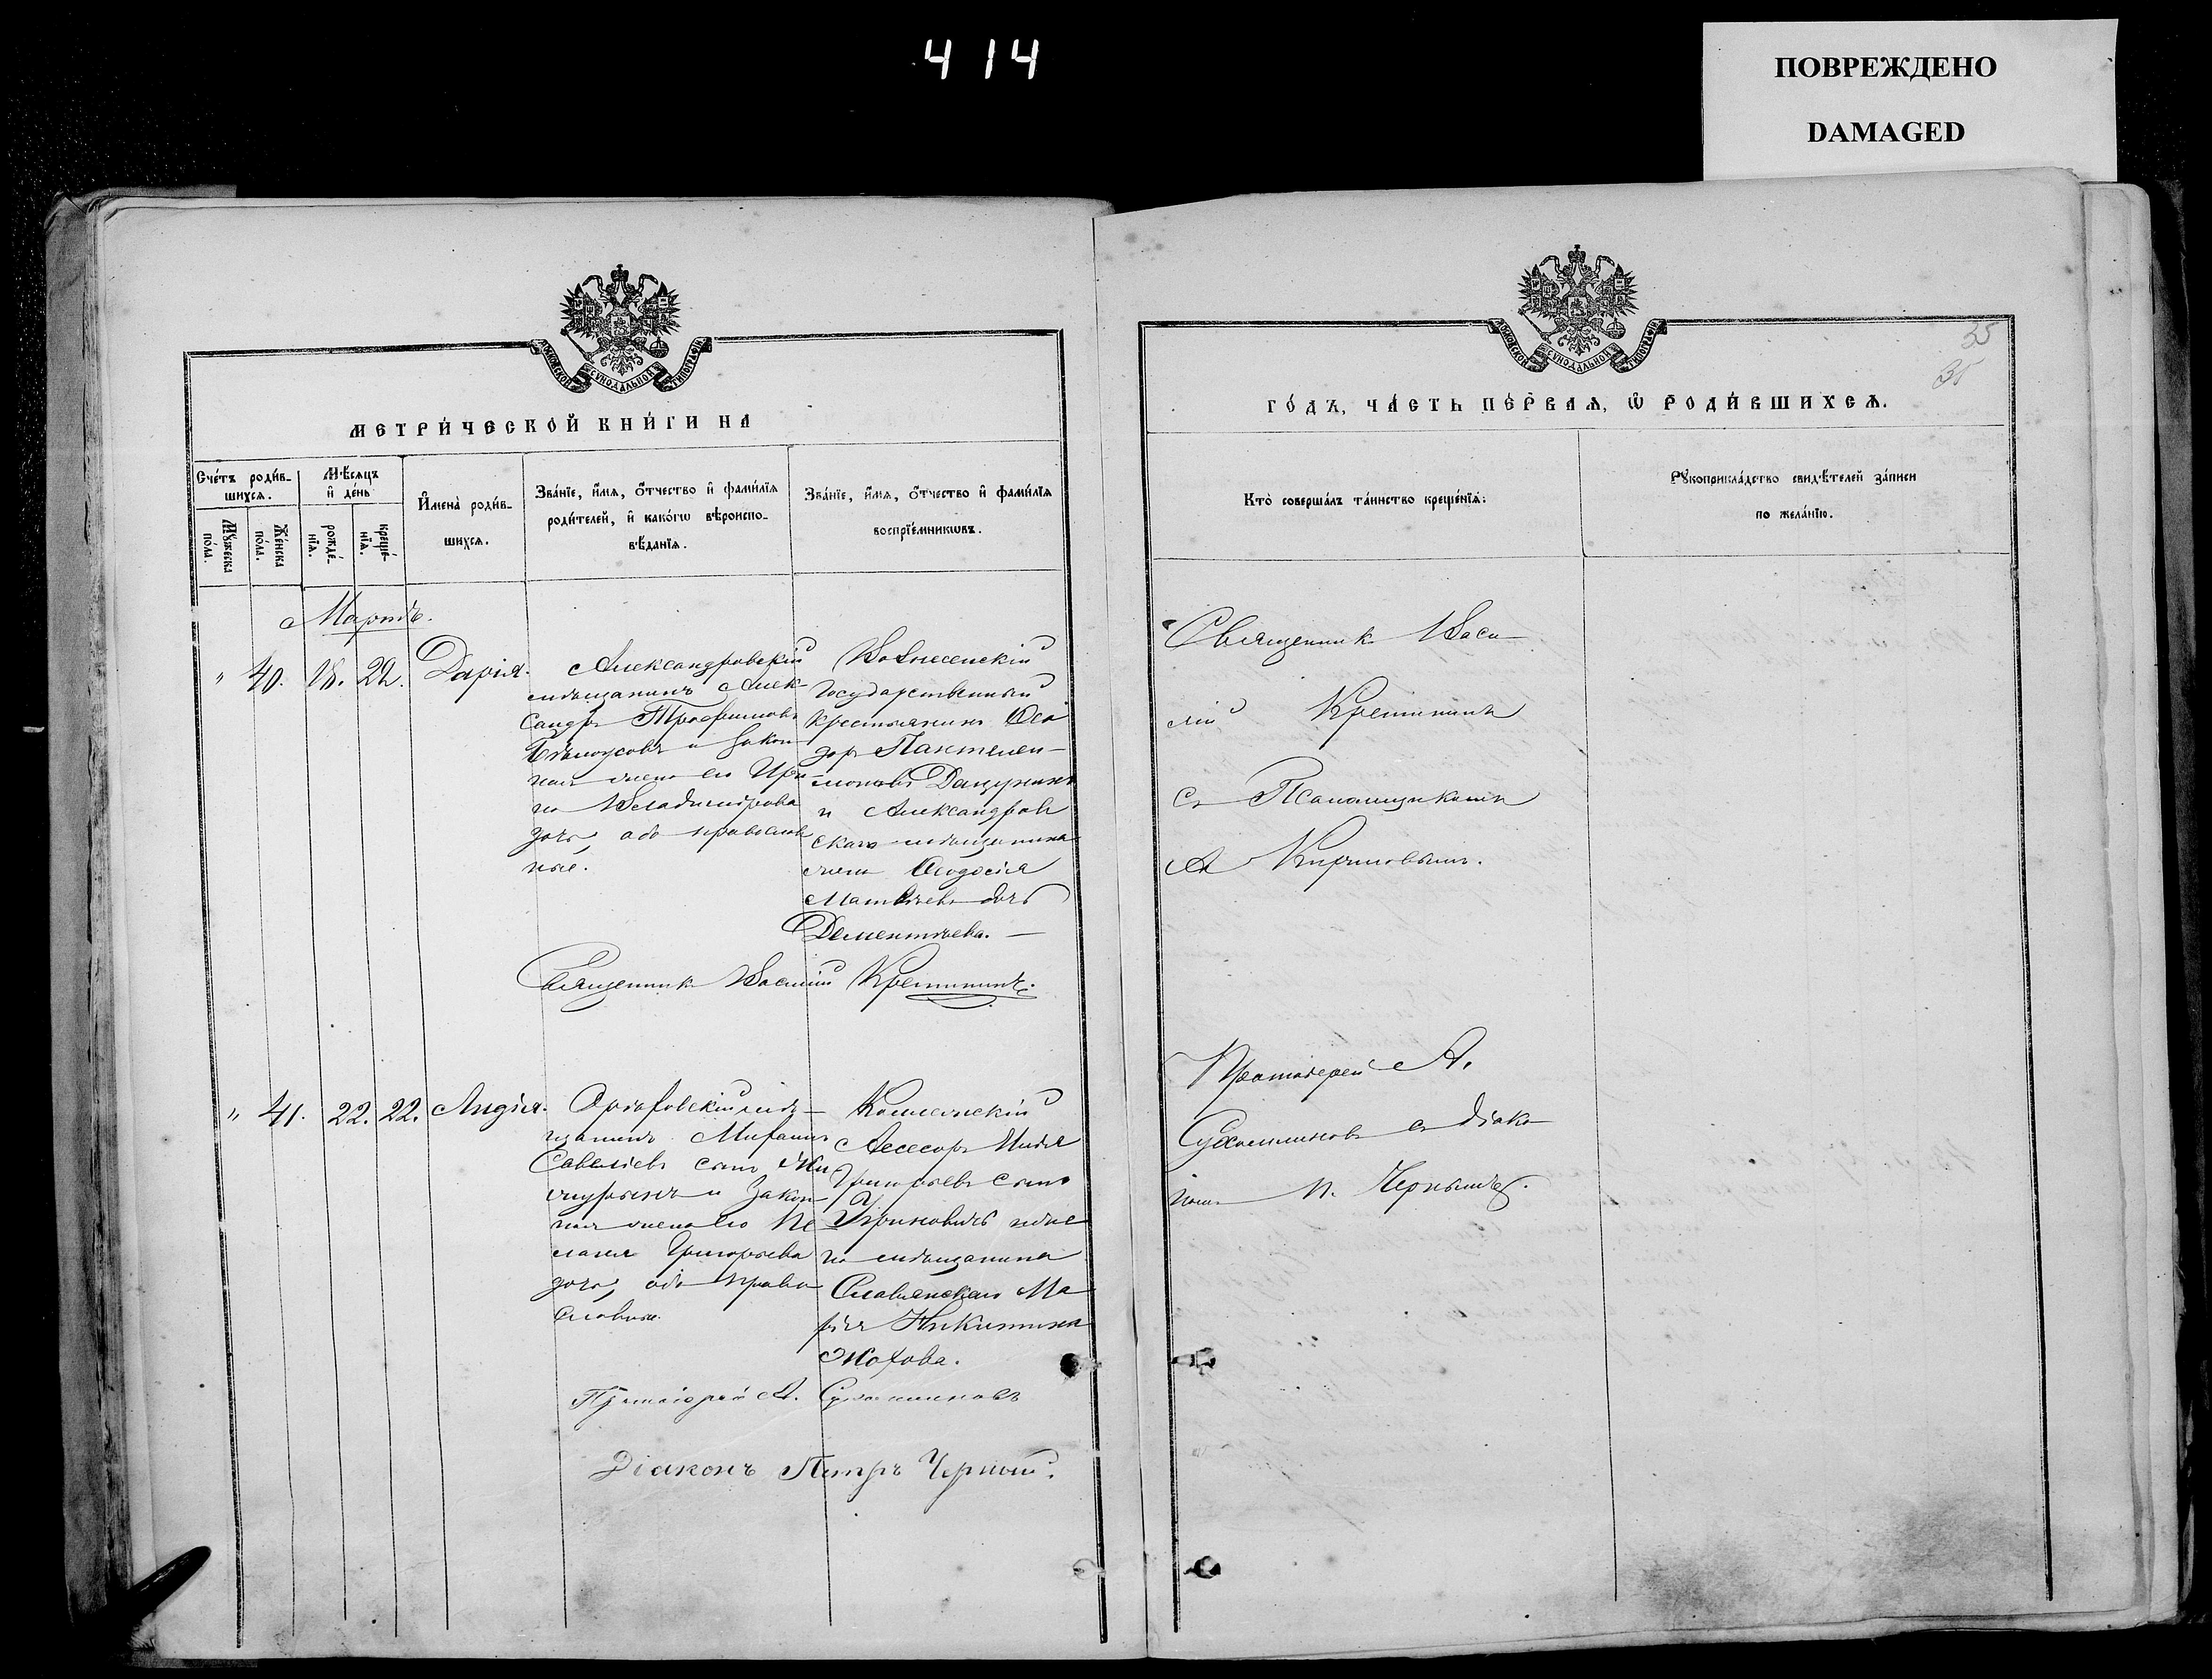 414
ПОВРЕЖДЕНО
DAMAGED
МОСКОВСКОЙ СѴНОДАЛЬНОЙ ТИПОГРАФІИ
МЕТРИ́ЧЕСКОЙ КНИ́ГИ НА
Сче́тъ роди́в-
шихсѧ.
Мꙋ́жеска
по́ла.
Же́нска
по́ла.
Мѣ́сѧцъ
и҆ де́нь
рожде́-
нїѧ.
креще́-
нїѧ.
И҆мена̀ роди́в-
шихсѧ.
Зва́нїе, и҆́мѧ, ѻ҆́тчество и҆ фами́лїѧ
роди́телей, и҆ како́гѡ вѣроиспо-
вѣ́данїѧ.
Зва́нїе, и҆́мѧ, ѻ҆́тчество и҆ фами́лїѧ
воспрїе́мникѡвъ.
Мартъ.
" 40. 18. 22. Дарія.
Александровскій
мѣщанинъ Алек-
сандръ Трофимовъ
Бѣлоусовъ и закон-
ная жена его Ири-
на Владимірова
дочь, оба православ
ные.
Вознесенскій
Государственный
крестьянинъ Ѳео
доръ Пантелеи-
моновъ
и Александров
скаго мѣщанина
жена Ѳеодосія
Матвѣева дочь
Дементьева.
Священникъ Василій Кретининъ.
" 41. 22. 22. Лидія.
Орѣховскій мѣ-
щанинъ
Савельевъ сынъ
и закон-
ная жена его Пе
лагія Григорьева
дочь, оба право
славные.
Коллежскій
Асессоръ Илья
Григорьевъ сынъ
и жена
мѣщанина
Славянскаго Ма
рія Никитина
Жохова.
Протоіерей А. Сухомлиновъ
Діаконъ Петръ Черный.
МОСКОВСКОЙ СѴНОДАЛЬНОЙ ТИПОГРАФІИ
35
35
ГО́ДЪ, ЧА́СТЬ ПЕ́РВАѦ, Ѡ҆ РОДИ́ВШИХСѦ.
Кто̀ соверша́лъ та́инство креще́нїѧ:
Рꙋкоприкла́дство свидѣ́телей за́писи
по жела́нїю.
Священникъ Васи-
лій Кретининъ
съ Псаломщикомъ
А Кириловымъ.
Протоіерей А.
Сухомлиновъ съ діако-
номъ П. Чернымъ.